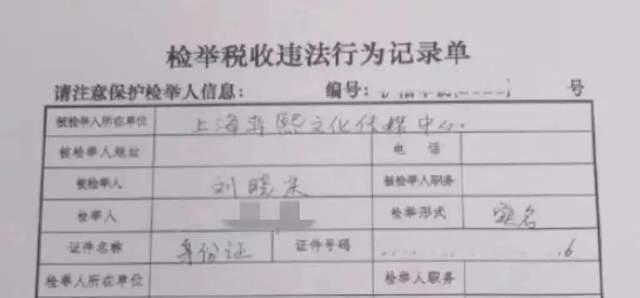 检举税收违法行为记录单
请注意保护检举人信息： 编号： 号
被检举人所在单位 上海 熙文化传媒中心
被检举人地址 电话
被检举人 刘晓 被检举人职务
检举人 检举形式 实名
证件名称 身份证 证件号码 6
检举人所在单位 检举人职务